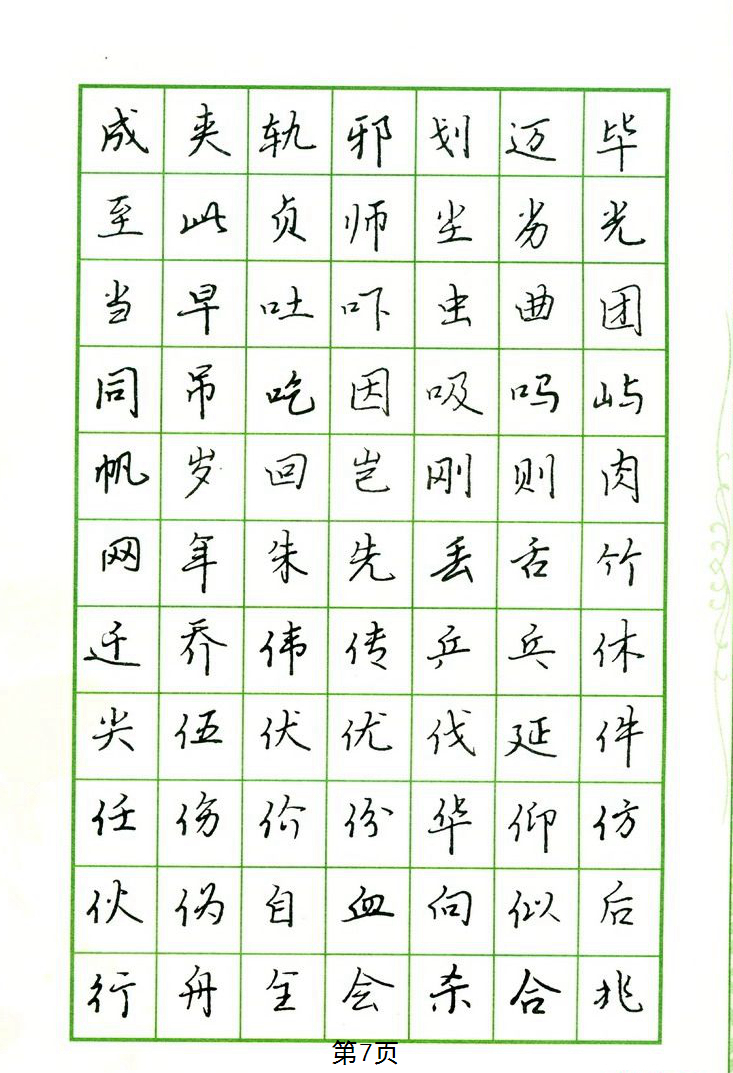 成夹轨邪划迈毕
至此贞师尘劣光
当早吐吓虫曲团
同吊吃因吸吗屿
帆岁回岂刚则肉
网年朱先丢舌竹
迁乔伟传乒乓休
尖伍伏优伐延件
任伤价份华仰仿
伙伪自血向似后
行舟全会杀合兆
第7页